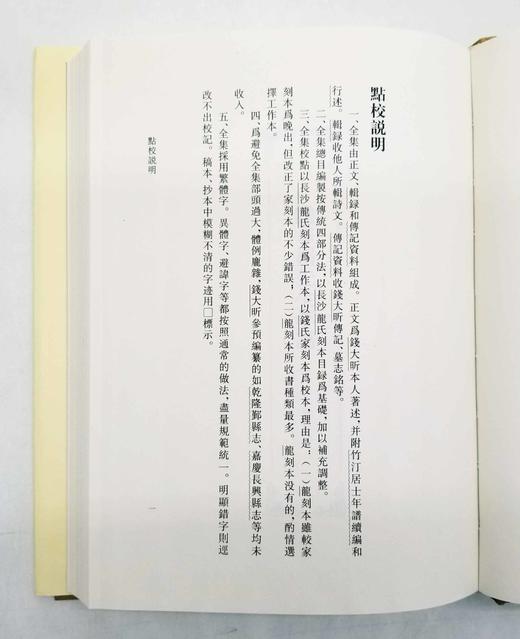 點校説明
一、全集由正文、輯録和傳記資料組成。正文爲錢大昕本人著述，并附竹汀居士年譜續編和
行述。輯録收他人所輯詩文。傳記資料收錢大昕傳記、墓志銘等。
二、全集總目編製按傳統四部分法，以長沙龍氏刻本目録爲基礎，加以補充調整。
三、全集校點以長沙龍氏刻本爲工作本，以錢氏家刻本爲校本，理由是：（一）龍刻本雖較家
刻本爲晚出，但改正了家刻本的不少錯誤，（二）龍刻本所收書種類最多。龍刻本没有的，酌情選
擇工作本。
四、爲避免全集部頭過大，體例龐雜，錢大昕參預編纂的如乾隆鄞縣志、嘉慶長興縣志等均未
收入。
五、全集採用繁體字。異體字、避諱字等都按照通常的做法，盡量規範統一。明顯錯字則逕
改不出校記。稿本、抄本中模糊不清的字迹用□標示。
點校説明
一